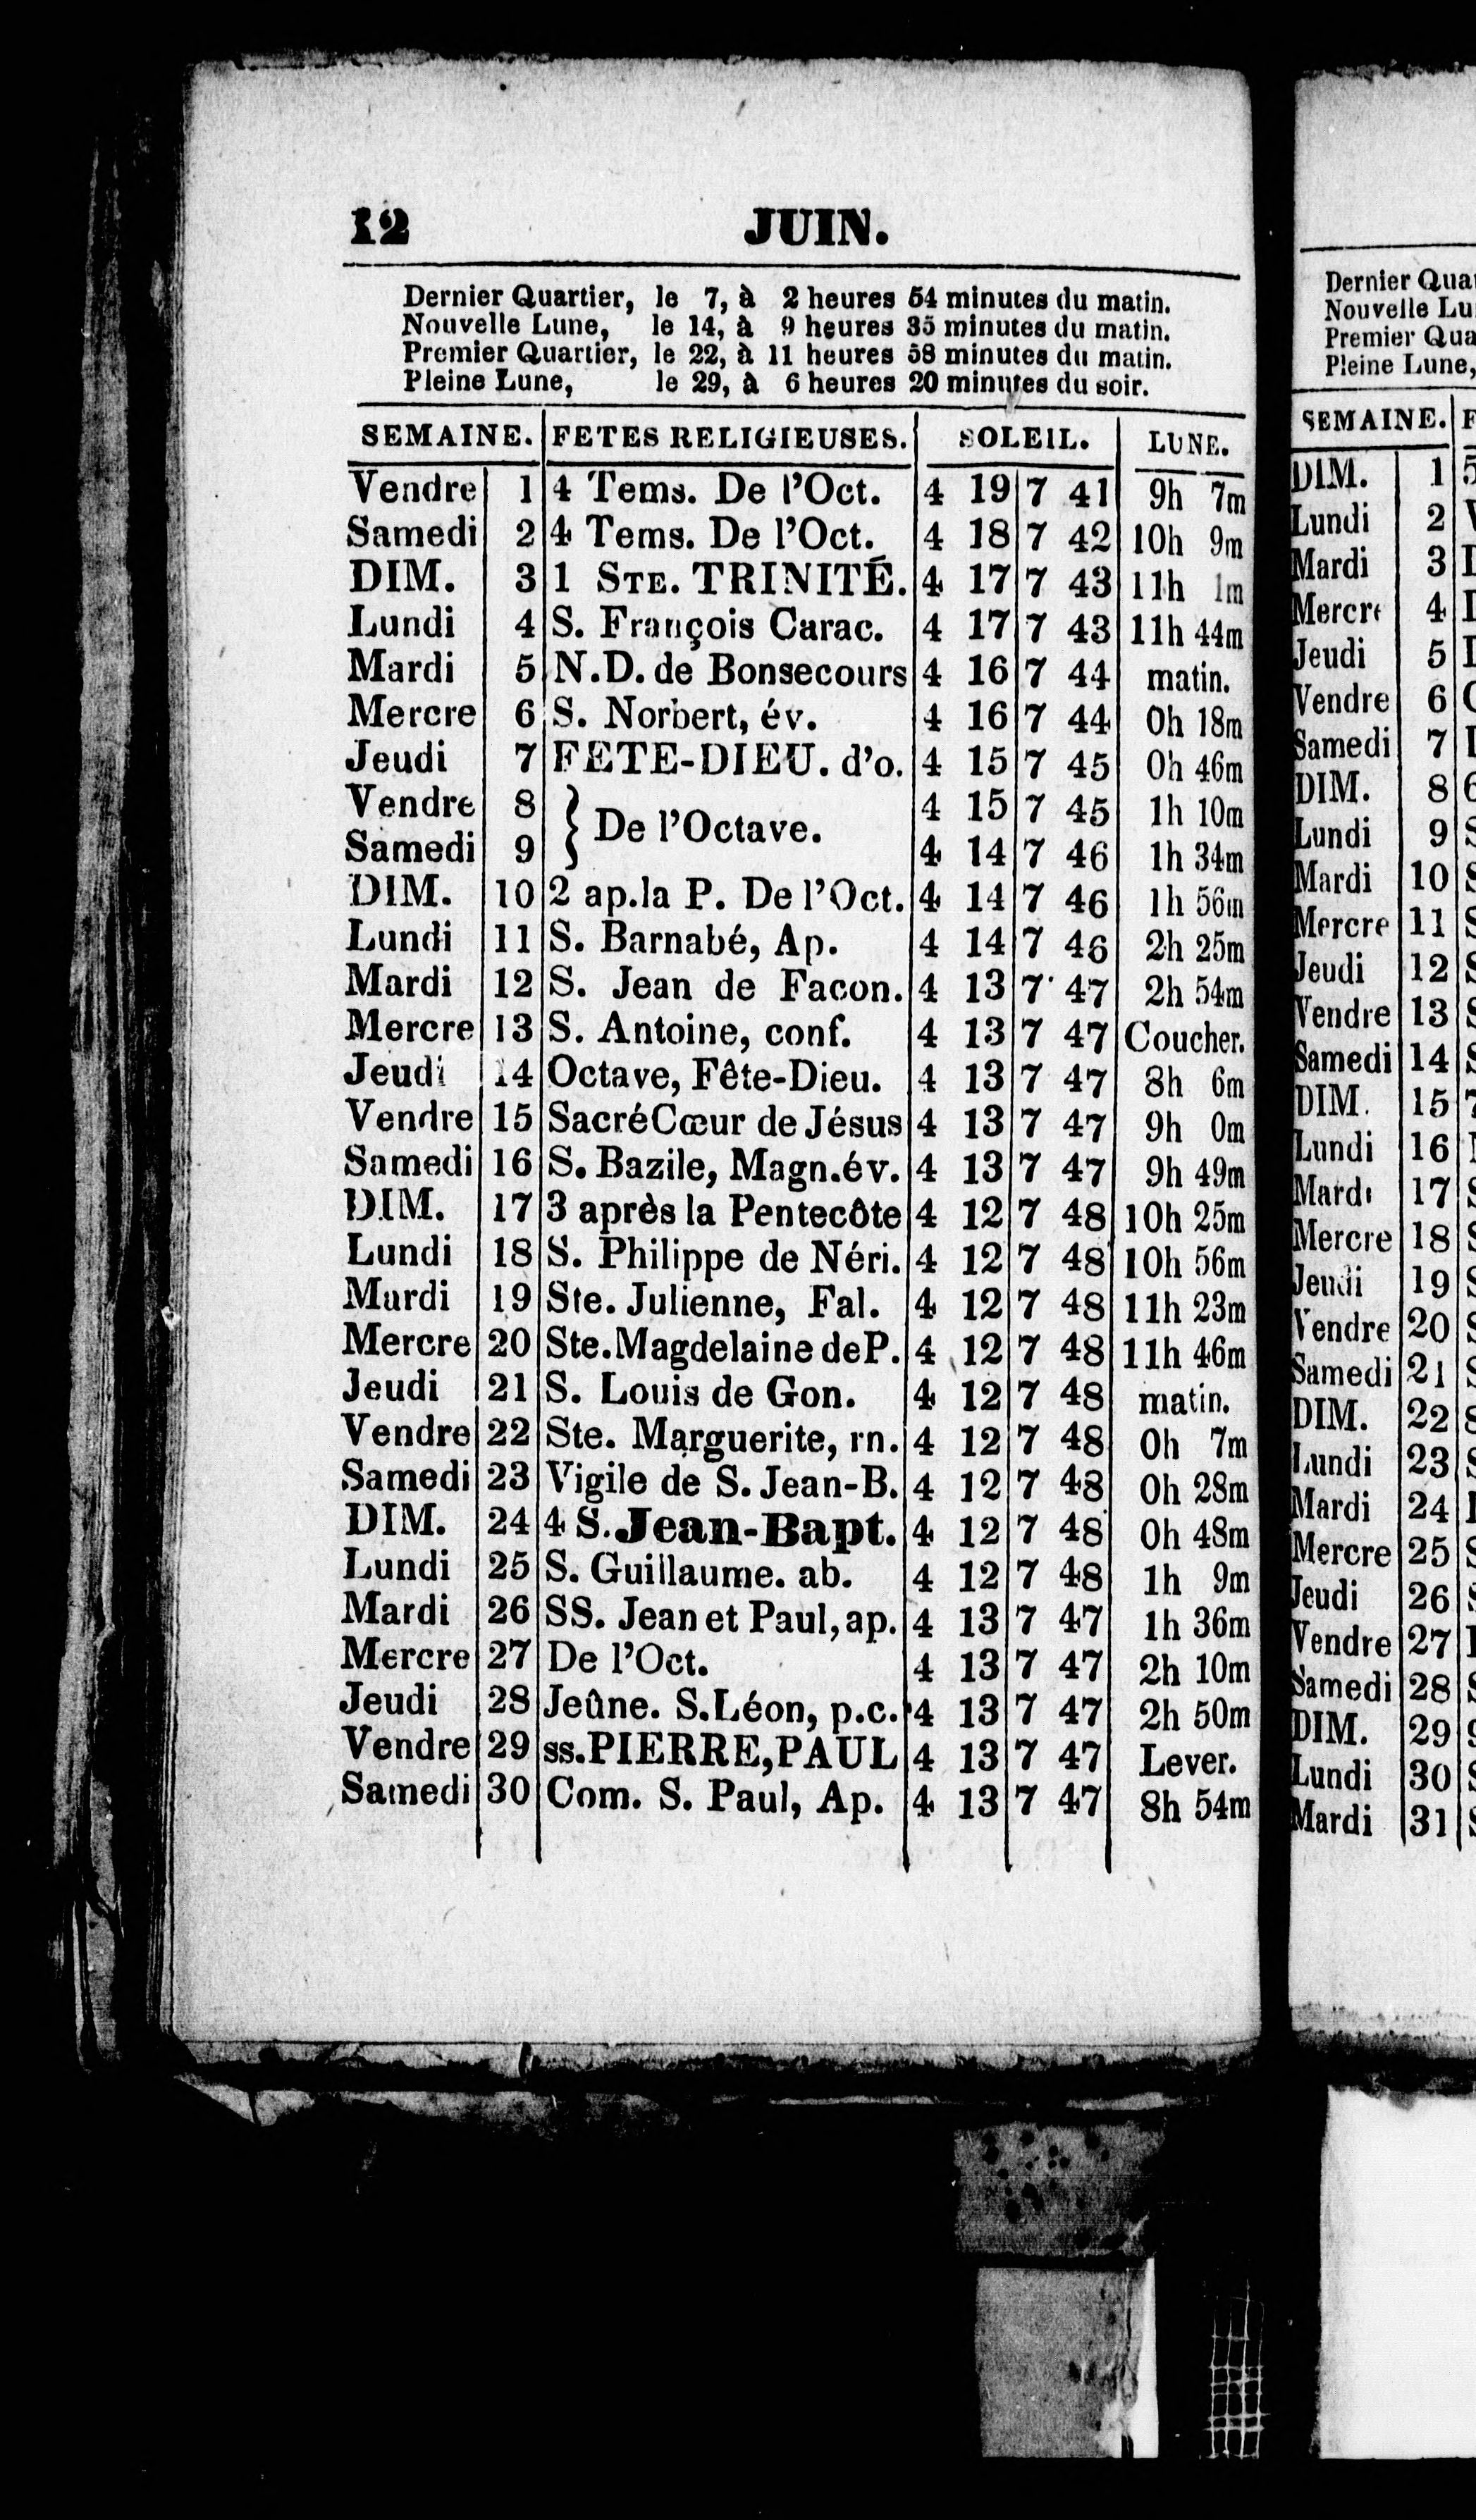 12 JUIN.
Dernier Quartier, le 7, à 2 heures 54 minutes du matin.
Nouvelle Lune, le 14, à 9 heures 35 minutes du matin.
Premier Quartier, le 22, à 11 heures 58 minutes du matin.
Pleine Lune, le 29, à 6 heures 20 minutes du soir.
SEMAINE. FETES RELIGIEUSES. SOLEIL. LUNE.
Vendre 1 4 Tems. De l'Oct. 4 19 7 41 9h 7m
Samedi 2 4 Tems. De l'Oct. 4 18 7 42 10h 9m
DIM. 3 1 STE. TRINITÉ. 4 17 7 43 11h 1m
Lundi 4 S. François Carac. 4 17 7 43 11h 44m
Mardi 5 N.D. de Bonsecours 4 16 7 44 matin.
Mercre 6 S. Norbert, év. 4 16 7 44 0h 18m
Jeudi 7 FETE-DIEU. d'o. 4 15 7 45 0h 46m
Vendre 8 } De l'Octave. 4 15 7 45 1h 10m
Samedi 9 4 14 7 46 1h 34m
DIM. 10 2 ap.la P. De l'Oct. 4 14 7 46 1h 56m
Lundi 11 S. Barnabé, Ap. 4 14 7 46 2h 25m
Mardi 12 S. Jean de Facon. 4 13 7 47 2h 54m
Mercre 13 S. Antoine, conf. 4 13 7 47 Coucher.
Jeudi 14 Octave, Fête-Dieu. 4 13 7 47 8h 6m
Vendre 15 Sacré Cœur de Jésus 4 13 7 47 9h 0m
Samedi 16 S. Bazile, Magn.év. 4 13 7 47 9h 49m
DIM. 17 3 après la Pentecôte 4 12 7 48 10h 25m
Lundi 18 S. Philippe de Néri. 4 12 7 48 10h 56m
Mardi 19 Ste. Julienne, Fal. 4 12 7 48 11h 23m
Mercre 20 Ste. Magdelaine de P. 4 12 7 48 11h 46m
Jeudi 21 S. Louis de Gon. 4 12 7 48 matin.
Vendre 22 Ste. Marguerite, rn. 4 12 7 48 0h 7m
Samedi 23 Vigile de S. Jean-B. 4 12 7 48 0h 28m
DIM. 24 4 S. Jean-Bapt. 4 12 7 48 0h 48m
Lundi 25 S. Guillaume. ab. 4 12 7 48 1h 9m
Mardi 26 SS. Jean et Paul, ap. 4 13 7 47 1h 36m
Mercre 27 De l'Oct. 4 13 7 47 2h 10m
Jeudi 28 Jeûne. S. Léon, p.c. 4 13 7 47 2h 50m
Vendre 29 ss. PIERRE, PAUL 4 13 7 47 Lever.
Samedi 30 Com. S. Paul, Ap. 4 13 7 47 8h 54m
Dernier
Nouvelle
Premier
Pleine Lune,
SEMAINE.
DIM. 1
Lundi 2
Mardi 3
Mercre 4
Jeudi 5
Vendre 6
Samedi 7
DIM. 8
Lundi 9
Mardi 10
Mercre 11
Jeudi 12
Vendre 13
Samedi 14
DIM. 15
Lundi 16
Mardi 17
Mercre 18
Jeudi 19
Vendre 20
Samedi 21
DIM. 22
Lundi 23
Mardi 24
Mercre 25
Jeudi 26
Vendre 27
Samedi 28
DIM. 29
Lundi 30
Mardi 31